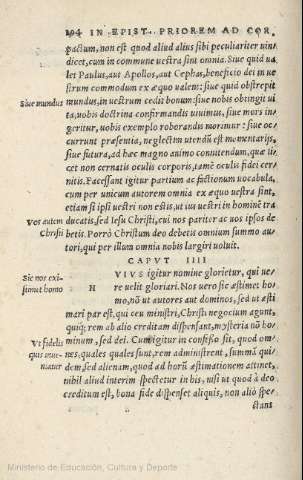 194 IN EPIST. PRIOREM AD COR
pactum, non est quod alius alius sibi peculiariter uin
dicet, cum in commune uestra sint omnia. Siue quid ua
let Paulus, aut Apollos, aut Cephas, beneficio dei in ue
strum commodum ex æquo ualent: siue quid obstrepit
Siue mundus
mundus, in uestrum cedit bonum: siue nobis obtingit ui
ta, uobis doctrina confirmandis uiuimus, siue mors in-
geritur, uobis exemplo roborandis morimur: siue oc-
currunt præsentia, neglectim utendū est momentarijs,
siue futura, ad hæc magno animo connitendum, quæ li-
cet non cernatis oculis corporis, tamē oculis fidei cer-
nitis. Facessant igitur partium ac factionum uocabula,
cum per unicum autorem omnia ex æquo uestra sint,
etiam si ipsi uestri non estis, ut ius uestri in hominē tra
Vos autem
ducatis, sed Iesu Christi, cui nos pariter ac uos ipsos de
Christi
betis. Porrò Christum deo debetis omnium summo au-
tori, qui per illum omnia nobis largiri uoluit.
CAPVT IIII
Sic nos exi-
stimet homo
H VIVS igitur nomine glorietur, qui ue-
re uelit gloriari. Nos uero sic æstimet ho-
mo, nō ut autores aut dominos, sed ut æsti
mari par est, qui ceu ministri, Christi negocium agunt,
quiq; rem ab alio creditam dispensant, mysteria nō ho
Vt fidelis
minum, sed dei. Cum igitur in confesso sit, quod om-
quis inue-
nes, quales quales sunt, rem administrent, summā qui-
niatur
dem sed alienam, quod ad horū æstimationem attinet,
nihil aliud interim spectetur in his, nisi ut quod à deo
creditum est, bona fide dispenset aliquis, non aliò spe-
ctans
Ministerio de Educación, Cultura y Deporte